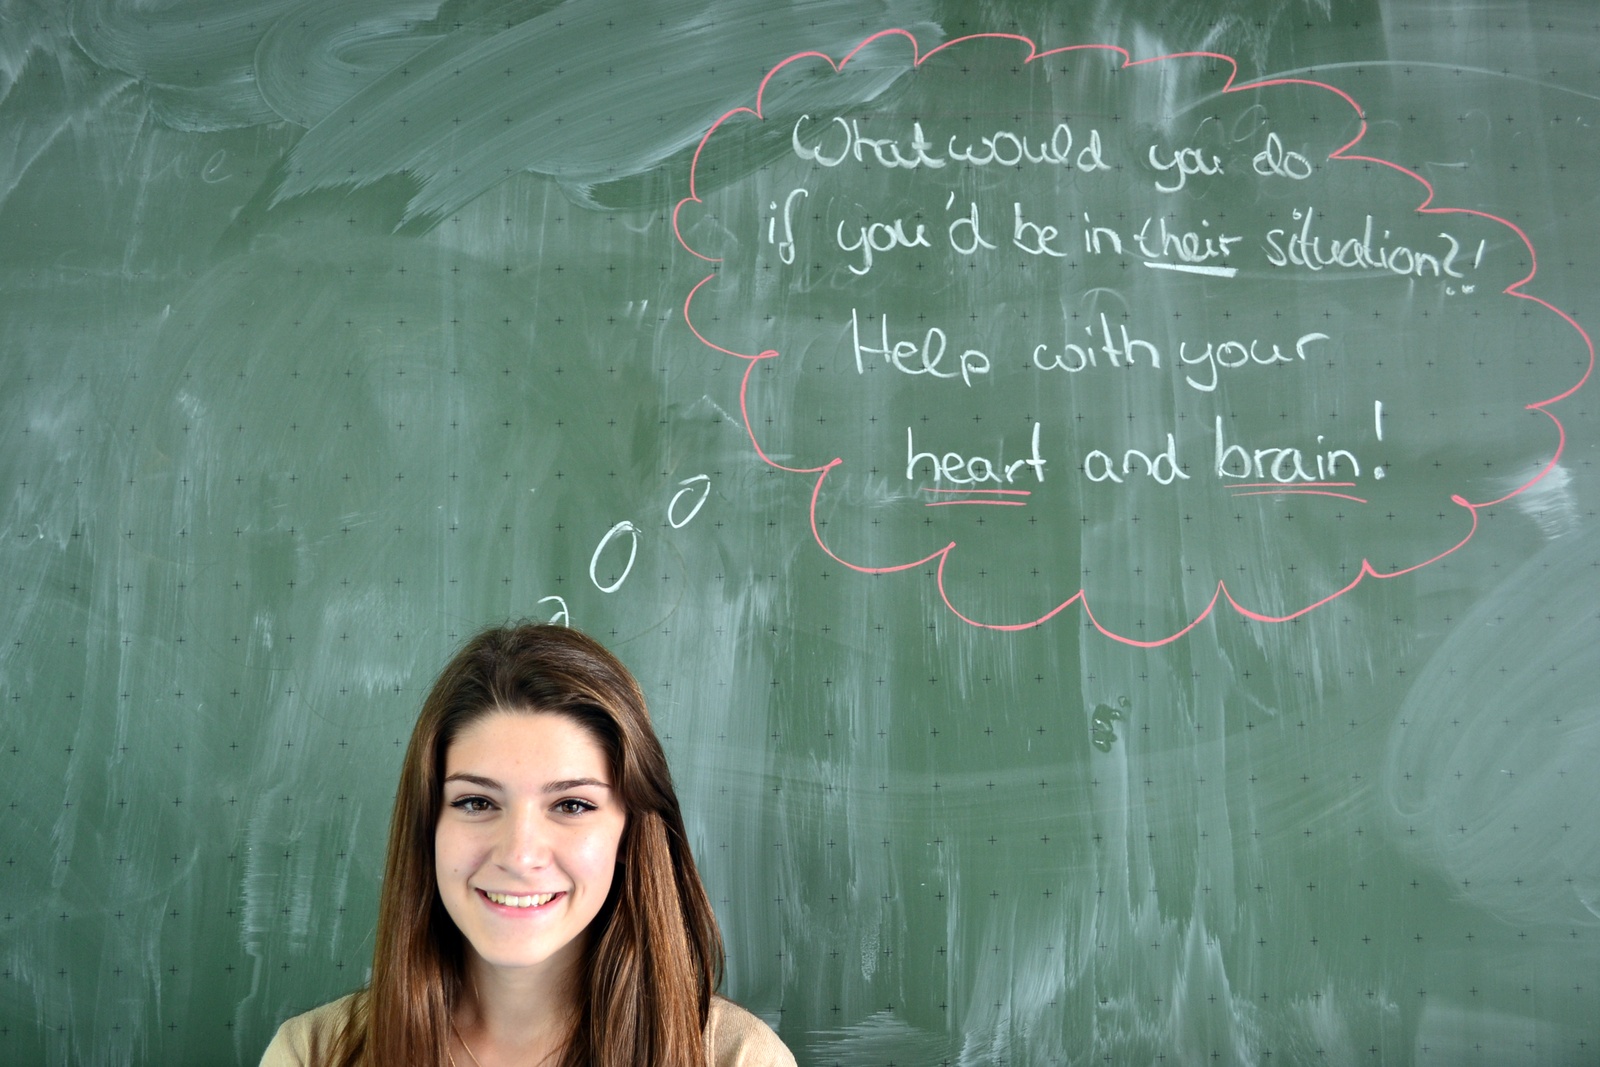 What would you do
if you'd be in their situation?!
Help with your
heart and brain!